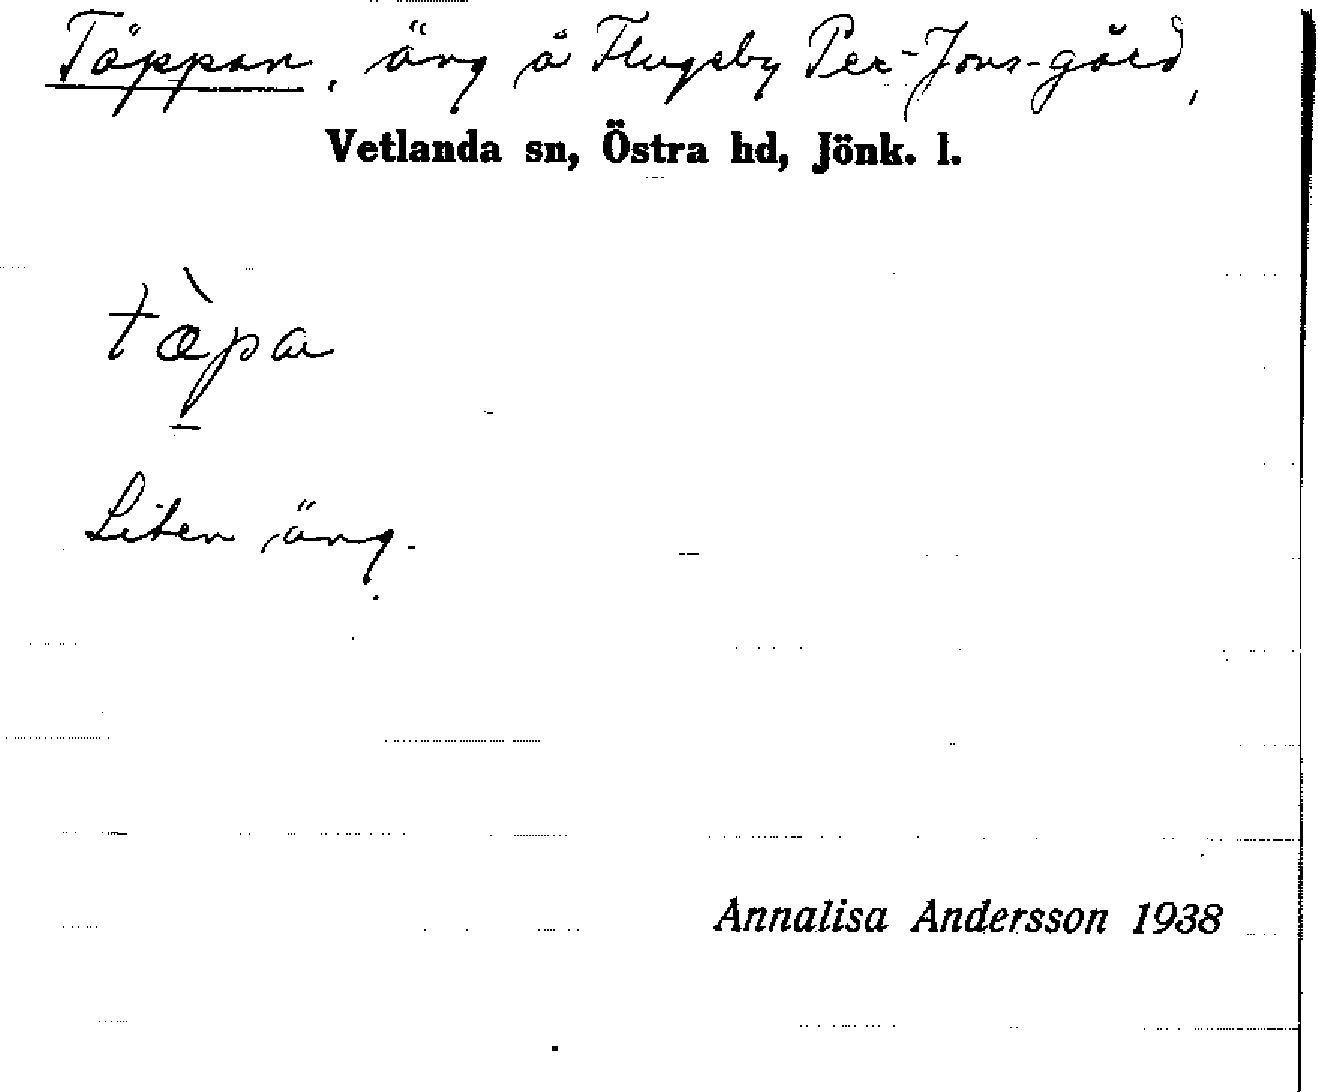 Täppan, äng å Flugeby Per-Jons-gård,
Vetlanda sn, Östra hd, Jönk. l.
tæ̀pa
Liten äng.
Annalisa Andersson 1938